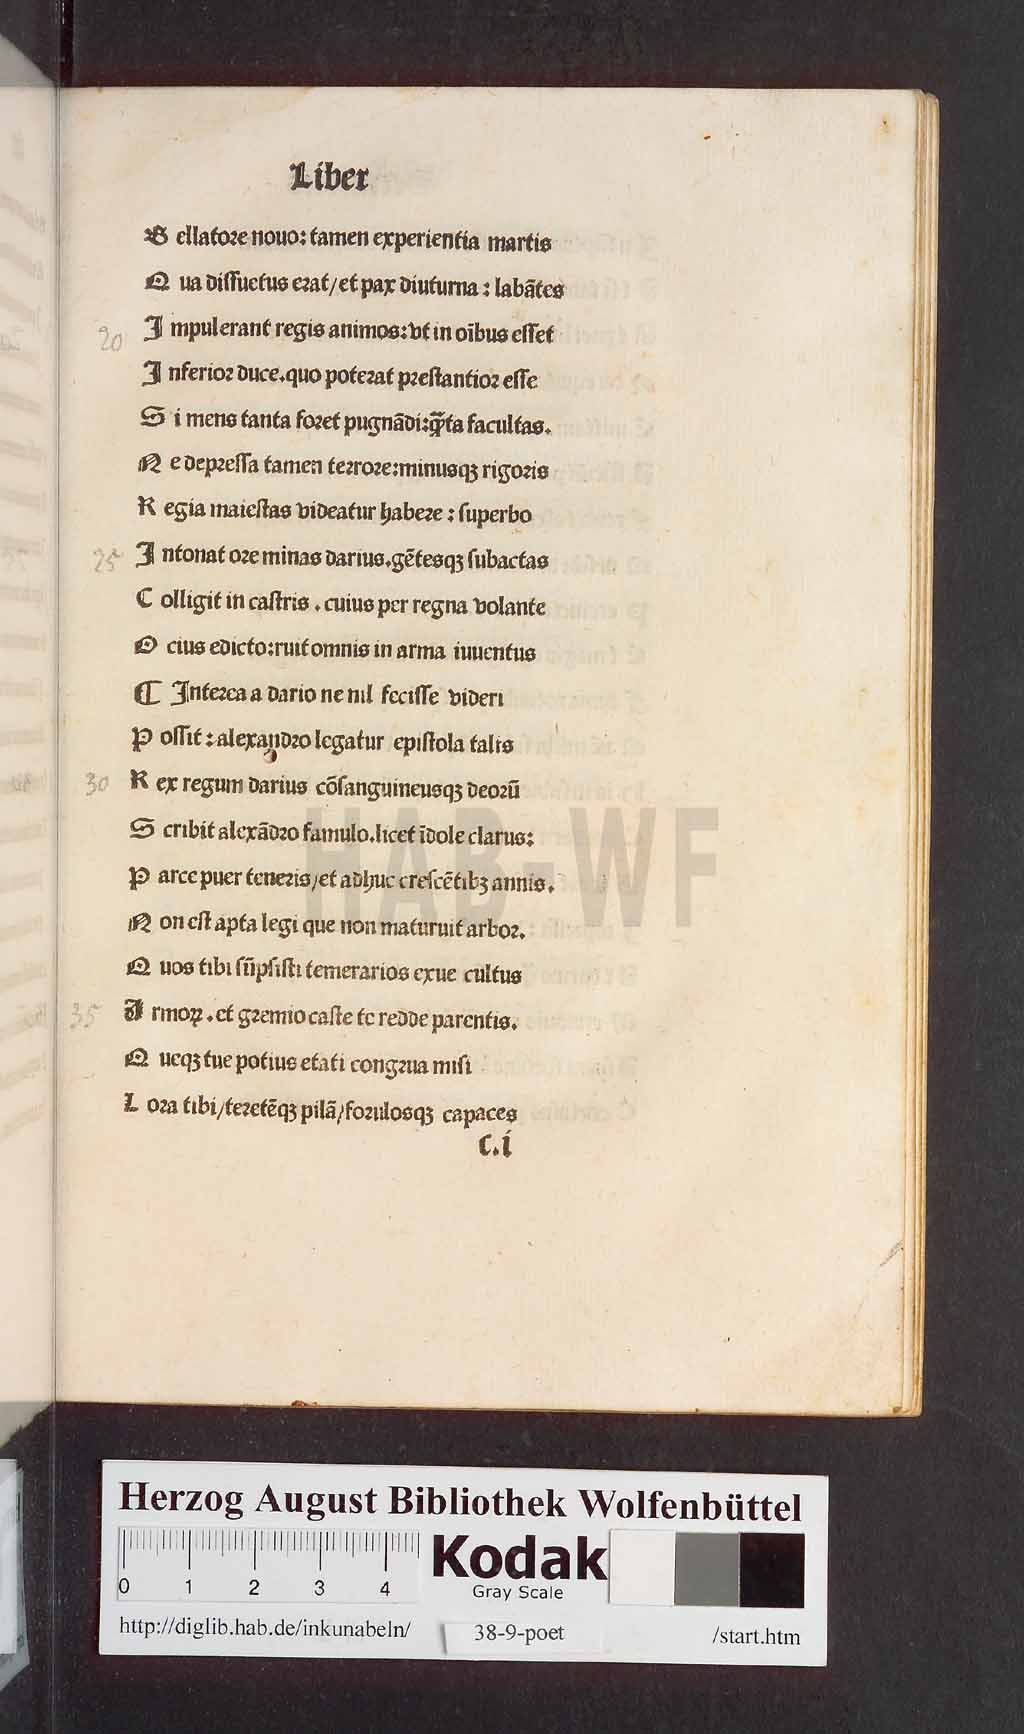 Liber
Bellatore nouo: tamen experientia martis
Qua dissuetus erat/et pax diuturna: labãtes
20 Impulerant regis animos: vt in oĩbus esset
Inferior duce. quo poterat prestantior esse
Si mens tanta foret pugnãdi: q̃ta facultas.
Ne depressa tamen terrore: minusqꝫ rigoris
Regia maiestas videatur habere: superbo
25 Intonat ore minas darius. gẽtesqꝫ subactas
Colligit in castris. cuius per regna volante
Ocius edicto: ruit omnis in arma iuuentus
⁋ Interea a dario ne nil fecisse videri
Possit: alexandro legatur epistola talis
30 Rex regum darius cõsanguineusqꝫ deorũ
Scribit alexãdro famulo. licet ĩdole clarus:
Parce puer teneris/et adhuc crescẽtibꝫ annis.
Non est apta legi que non maturuit arbor.
Quos tibi sũpsisti temerarios exue cultus
35 Armoꝝ. et gremio caste te redde parentis.
Queqꝫ tue potius etati congrua misi
Lora tibi/teretẽqꝫ pilã/forulosqꝫ capaces
c.i
HAB-WF
Herzog August Bibliothek Wolfenbüttel
0 1 2 3 4
Kodak
Gray Scale
http://diglib.hab.de/inkunabeln/ 38-9-poet /start.htm